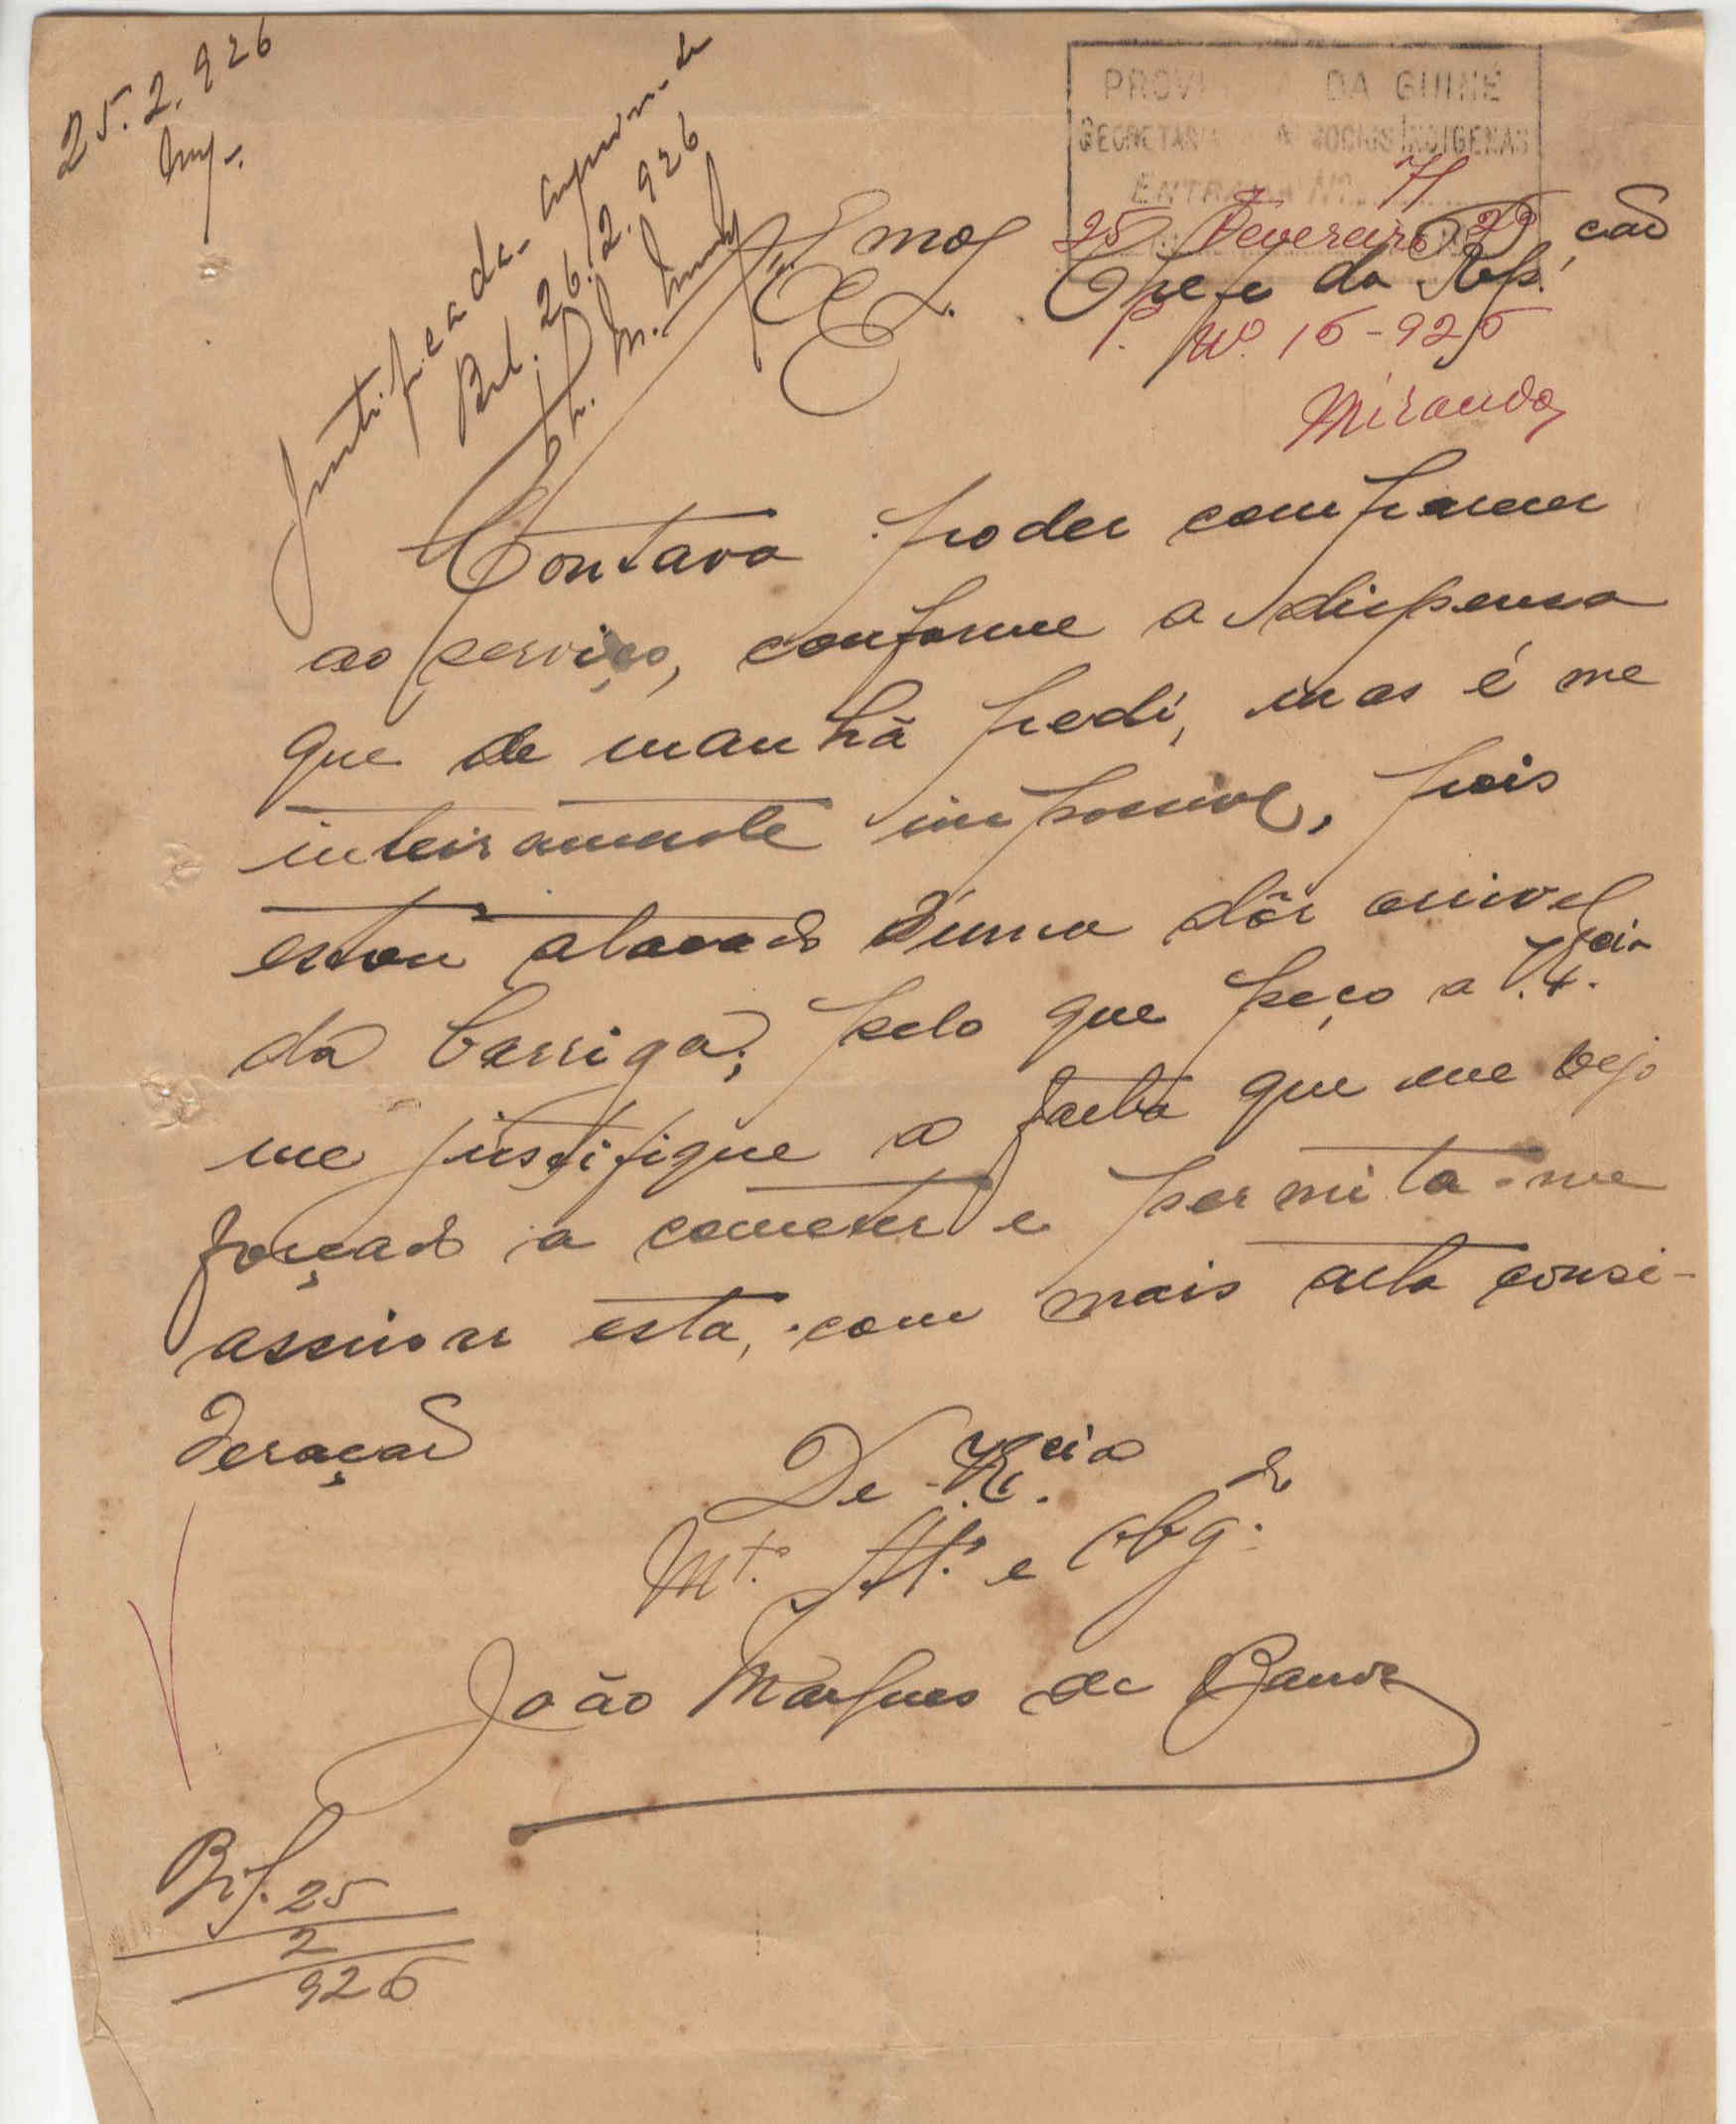 25.2.926
Justificada
Bol. 26.2.926
PROVINCIA DA GUINÉ
SECRETARIA NEGOCIOS INDIGENAS
ENTRADA Nº 71
25 Fevereiro
Exmo
Chefe da Rep.ção
P. Nº 15-925
Miranda
Contava poder comparecer
ao serviço, conforme a dispensa
que de manhã pedi, mas é me
inteiramente impossivel, pois
estou atacado d'uma dôr orrivel
da barriga, pelo que peço a V. Ex.cia
me justifique a falta que me vejo
forçado a cometer e permita-me
assinar esta, com mais alta consi-
deração
De V. Ex.cia
Mt.º At.º e Obg.do
João Marques de Barros
Bis. 25
2
926